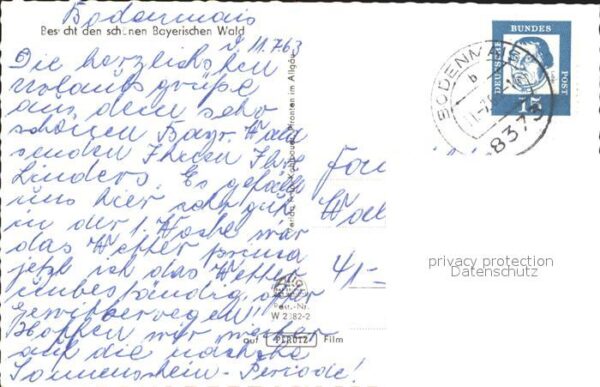 Bodenmais
Besucht den schönen Bayerischen Wald
d. 11.7.63
Die herzlichsten
Urlaubsgrüße
aus dem sehr
schönen Bayr. Wald
senden Ihnen Ihre
Linders. Es gefällt
uns hier sehr gut
in der 1. Woche war
das Wetter prima
jetzt ist das Wetter
unbeständig, aber
Gewitterregen!
Hoffen wir weiter
auf die nächste
Sonnenschein-Periode!
DEUTSCHE BUNDES POST
15
BODENMAIS
b
8373
privacy protection
Datenschutz
W 2382-2
auf PERUTZ Film